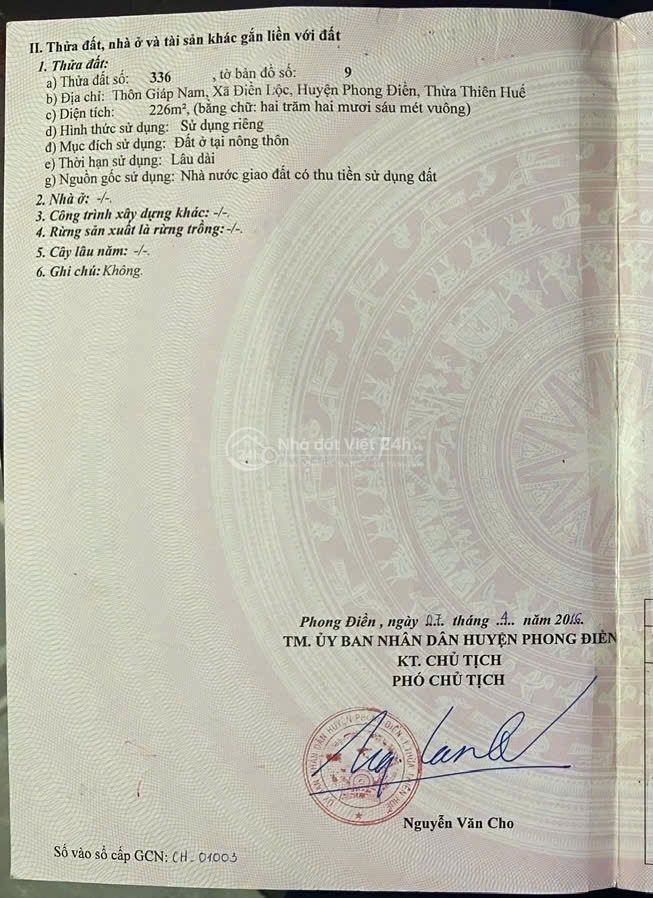 II. Thửa đất, nhà ở và tài sản khác gắn liền với đất
1. Thửa đất:
a) Thửa đất số: 336 , tờ bản đồ số: 9
b) Địa chỉ: Thôn Giáp Nam, Xã Điền Lộc, Huyện Phong Điền, Thừa Thiên Huế
c) Diện tích: 226m², (bằng chữ: hai trăm hai mươi sáu mét vuông)
d) Hình thức sử dụng: Sử dụng riêng
đ) Mục đích sử dụng: Đất ở tại nông thôn
e) Thời hạn sử dụng: Lâu dài
g) Nguồn gốc sử dụng: Nhà nước giao đất có thu tiền sử dụng đất
2. Nhà ở: -/-.
3. Công trình xây dựng khác: -/-.
4. Rừng sản xuất là rừng trồng: -/-.
5. Cây lâu năm: -/-.
6. Ghi chú: Không.
Nhà đất Việt 24h
Phong Điền , ngày 07 tháng .. năm 2016.
TM. ỦY BAN NHÂN DÂN HUYỆN PHONG ĐIỀN
KT. CHỦ TỊCH
PHÓ CHỦ TỊCH
ỦY BAN NHÂN DÂN HUYỆN PHONG ĐIỀN - T.THỪA THIÊN HUẾ
Nguyễn Văn Cho
Số vào sổ cấp GCN: CH-01003